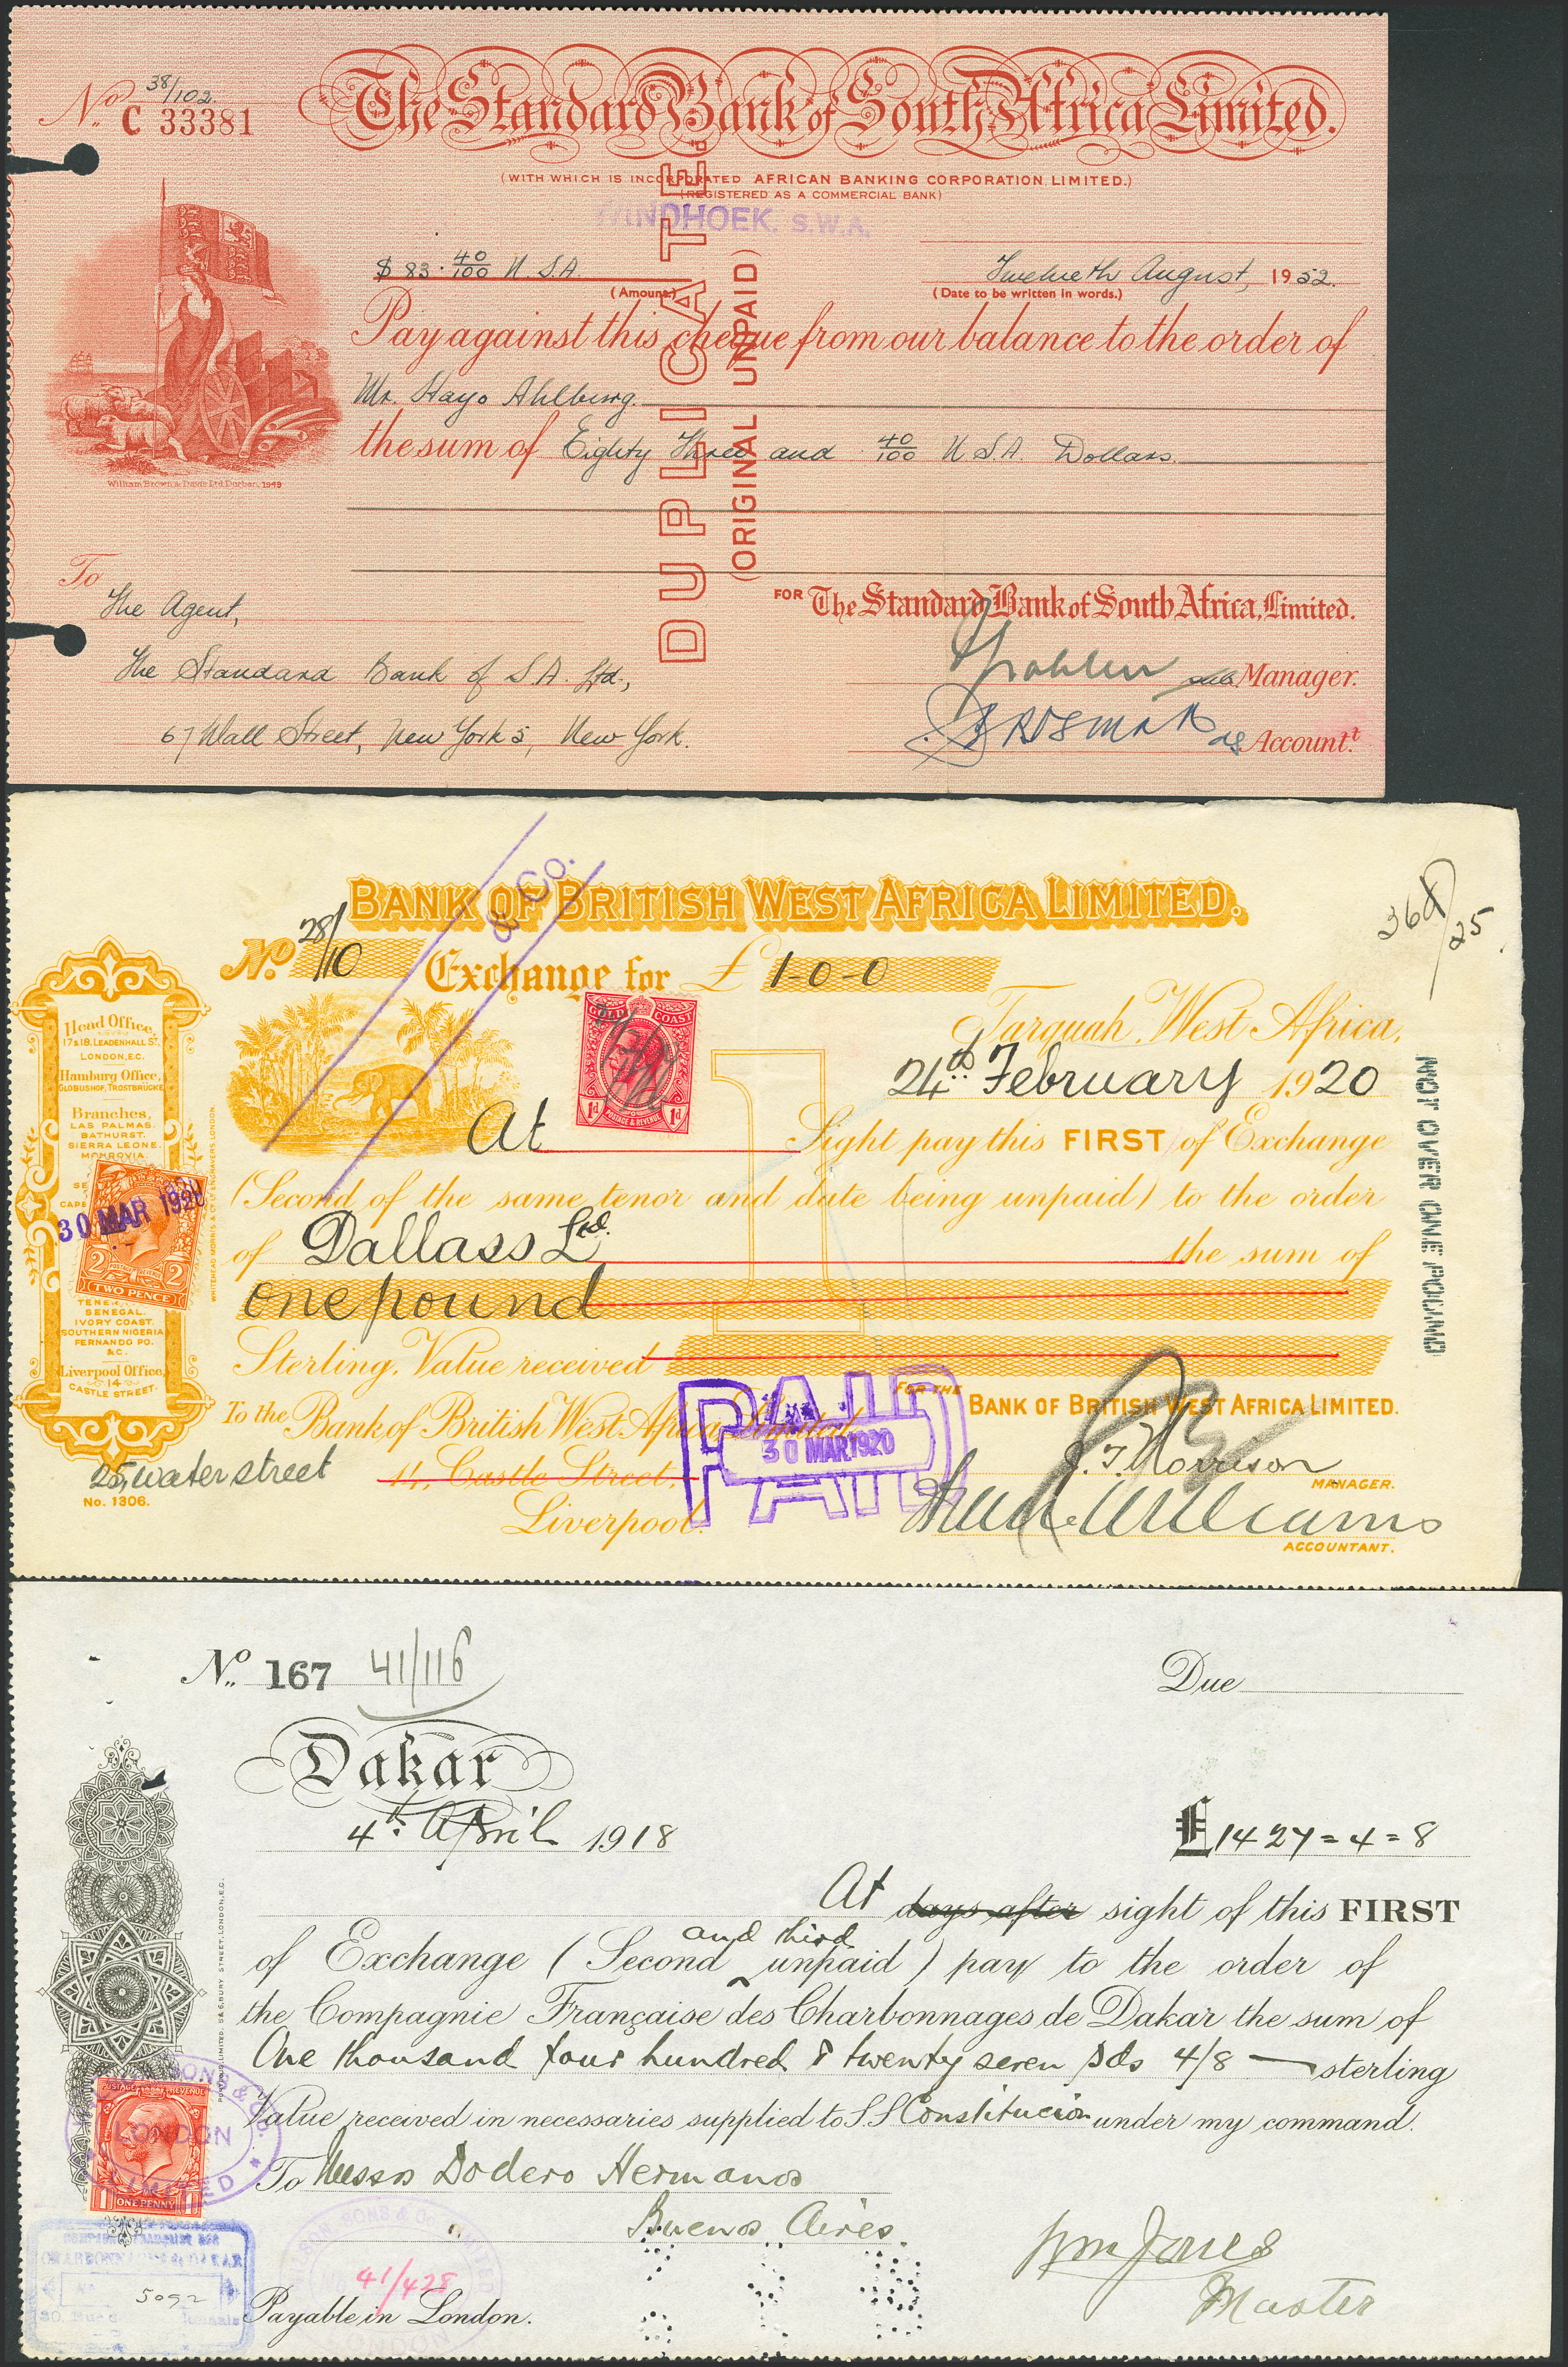 No. 38/102.
C 33381
The Standard Bank of South Africa Limited.
(WITH WHICH IS INCORPORATED AFRICAN BANKING CORPORATION, LIMITED.)
(REGISTERED AS A COMMERCIAL BANK)
WINDHOEK, S.W.A.
$ 83. 40/100 U.S.A. Twelveth August, 1952.
(Amount) (Date to be written in words.)
Pay against this cheque from our balance to the order of
Mr. Hayo Ahlburg.
the sum of Eighty Three and 40/100 U.S.A. Dollars
William Brown & Davis Ltd Durban, 1949
DUPLICATE.
(ORIGINAL UNPAID)
To
The Agent,
FOR The Standard Bank of South Africa, Limited.
The Standard Bank of S.A. Ltd.,
Manager.
67 Wall Street, New York 5, New York.
Account.t
BANK OF BRITISH WEST AFRICA LIMITED.
& Co.
No. 28/10 Exchange for £ 1-0-0
36d/25
Tarquah, West Africa,
24th February 1920
GOLD COAST
1d POSTAGE & REVENUE 1d
At Sight pay this FIRST of Exchange
(Second of the same tenor and date being unpaid) to the order
of Dallass Ltd. the sum of
one pound
Sterling, Value received
NOT OVER ONE POUND
FOR THE BANK OF BRITISH WEST AFRICA LIMITED.
To the Bank of British West Africa, Limited,
25, water street 14, Castle Street,
Liverpool.
No. 1306.
PAID
30 MAR 1920
J. T. Morrison
MANAGER.
Williams
ACCOUNTANT.
Head Office,
17 & 18, LEADENHALL ST.
LONDON, E.C.
Hamburg Office,
GLOBUSHOF, TROSTBRÜCKE
Branches,
LAS PALMAS.
BATHURST.
SIERRA LEONE.
MONROVIA
30 MAR 1920
2 POSTAGE REVENUE 2
TWO PENCE
SENEGAL.
IVORY COAST.
SOUTHERN NIGERIA
FERNANDO PO.
&C.
Liverpool Office,
14
CASTLE STREET.
WHITEHEAD MORRIS & CO LD ENGRAVERS, LONDON
No. 167 41/116 Due
Dakar
4th April 1918 £1427=4=8
At days after sight of this FIRST
and third
of Exchange (Second unpaid) pay to the order of
the Compagnie Française des Charbonnages de Dakar the sum of
One thousand four hundred & twenty seven pds 4/8 sterling
Value received in necessaries supplied to S.S. Constitucion under my command.
To Messrs Dodero Hermanos
Buenos Aires
Wm Jones
Master
41/428
Payable in London.
SONS & CO.
LONDON
LIMITED
POSTAGE REVENUE
1 ONE PENNY 1
CHARBONNAGES de DAKAR
No 5092
LIMITED. 5 & 6, BURY STREET, LONDON, E.C.